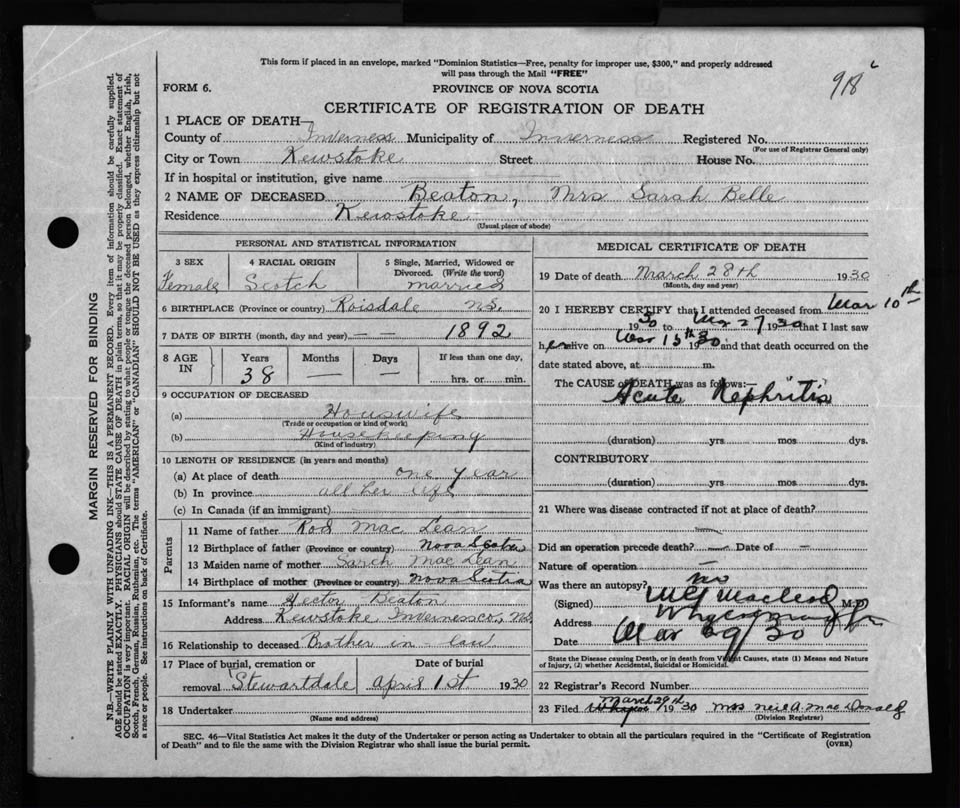 This form if placed in an envelope, marked "Dominion Statistics—Free, penalty for improper use, $300," and properly addressed
will pass through the Mail "FREE"
918
FORM 6.
PROVINCE OF NOVA SCOTIA
CERTIFICATE OF REGISTRATION OF DEATH
1 PLACE OF DEATH—
County of Inverness Municipality of Inverness Registered No.
(For use of Registrar General only)
City or Town Kewstoke Street House No.
If in hospital or institution, give name
2 NAME OF DECEASED Beaton, Mrs Sarah Belle
Residence Kewstoke
(Usual place of abode)
PERSONAL AND STATISTICAL INFORMATION
3 SEX 4 RACIAL ORIGIN 5 Single, Married, Widowed or
Divorced. (Write the word)
Female Scotch married
6 BIRTHPLACE (Province or country) Roisdale N.S.
7 DATE OF BIRTH (month, day and year) — — 1892
8 AGE IN Years Months Days If less than one day,
38 — — hrs. or min.
9 OCCUPATION OF DECEASED
(a) Houswife
(Trade or occupation or kind of work)
(b) Housekeeping
(Kind of industry)
10 LENGTH OF RESIDENCE (in years and months)
(a) At place of death one year
(b) In province all her life
(c) In Canada (if an immigrant)
Parents
11 Name of father Rod Mac Lean
12 Birthplace of father (Province or country) Nova Scotia
13 Maiden name of mother Sarah Mac Lean
14 Birthplace of mother (Province or country) Nova Scotia
15 Informant's name Hector Beaton
Address Kewstoke Inverness co., N.S.
16 Relationship to deceased Brother in - law
17 Place of burial, cremation or Date of burial
removal Stewartdale April 1st 1930
18 Undertaker
(Name and address)
MEDICAL CERTIFICATE OF DEATH
19 Date of death March 28th 1930
(Month, day and year)
20 I HEREBY CERTIFY that I attended deceased from Mar 10th
1930 to Mar 27 1930 that I last saw
her alive on Mar 15th 1930 and that death occurred on the
date stated above, at m.
The CAUSE of DEATH was as follows:—
Acute Nephritis
(duration) yrs. mos. dys.
CONTRIBUTORY
(duration) yrs. mos. dys.
21 Where was disease contracted if not at place of death?
Did an operation precede death? — Date of —
Nature of operation
Was there an autopsy? no
(Signed) MacLeod M.D.
Address Whycocomagh
Date Mar 29/30
State the Disease causing Death, or in death from Violent Causes, state (1) Means and Nature
of Injury, (2) whether Accidental, Suicidal or Homicidal.
22 Registrar's Record Number
23 Filed March 29th 1930 Mrs Neil A. Mac Donald
(Division Registrar)
SEC. 46—Vital Statistics Act makes it the duty of the Undertaker or person acting as Undertaker to obtain all the particulars required in the "Certificate of Registration
of Death" and to file the same with the Division Registrar who shall issue the burial permit.
(OVER)
MARGIN RESERVED FOR BINDING
N.B.—WRITE PLAINLY WITH UNFADING INK—THIS IS A PERMANENT RECORD. Every item of information should be carefully supplied.
AGE should be stated EXACTLY. PHYSICIANS should STATE CAUSE OF DEATH in plain terms, so that it may be properly classified. Exact statement of
OCCUPATION is very important. RACIAL ORIGIN will be described by stating to what people or tongue the deceased person belonged, whether English, Irish,
Scotch, French, German, Russian, Ruthenian, etc. The terms "AMERICAN" or "CANADIAN" SHOULD NOT BE USED as they express citizenship but not
a race or people. See instructions on back of Certificate.